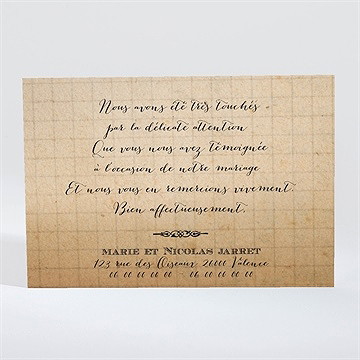 Nous avons été très touchés
par la délicate attention
Que vous nous avez témoignée
à l'occasion de notre mariage
Et nous vous en remercions vivement.
Bien affectueusement.
MARIE ET NICOLAS JARRET
123 rue des Oiseaux 26000 Valence
06 00 00 00 00 - 06 00 00 00 00